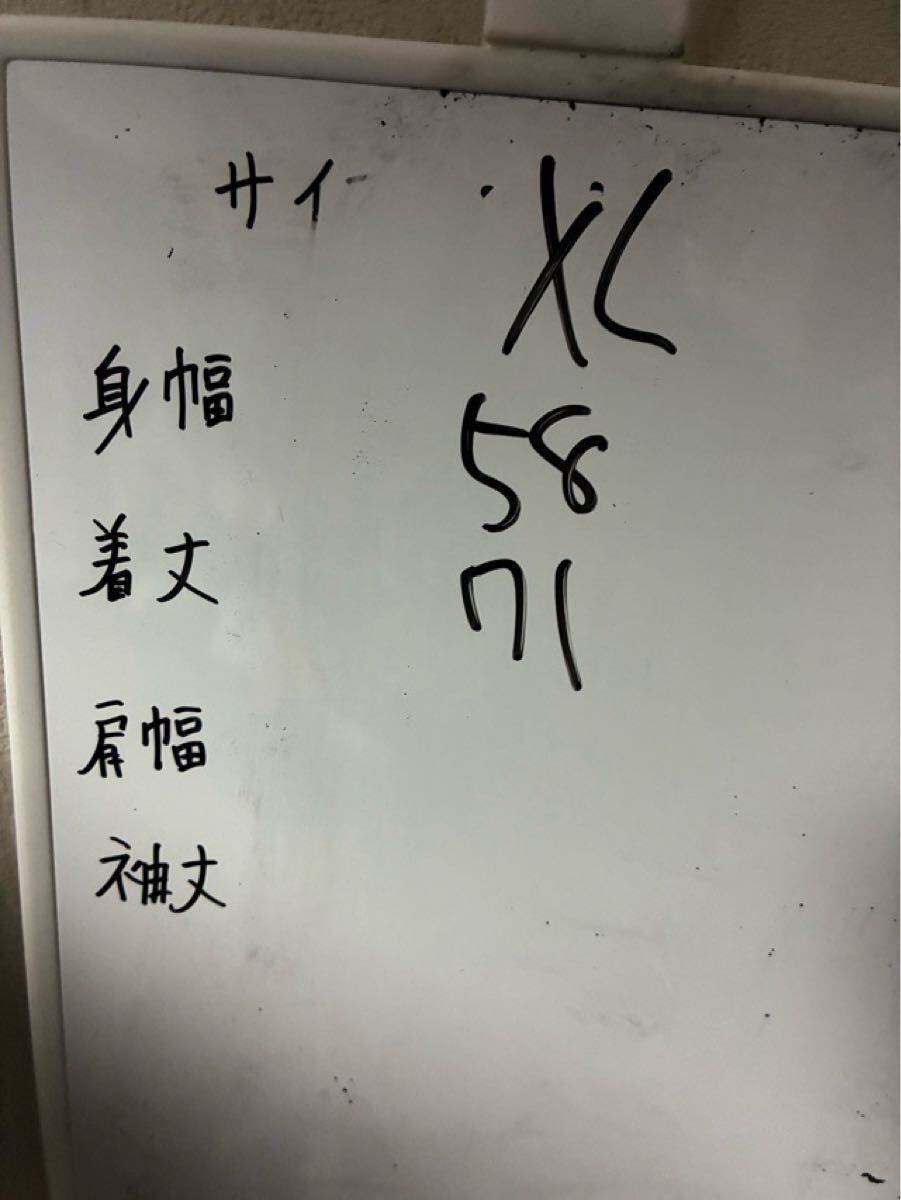 サイ XL
身幅 58
着丈 71
肩幅
袖丈